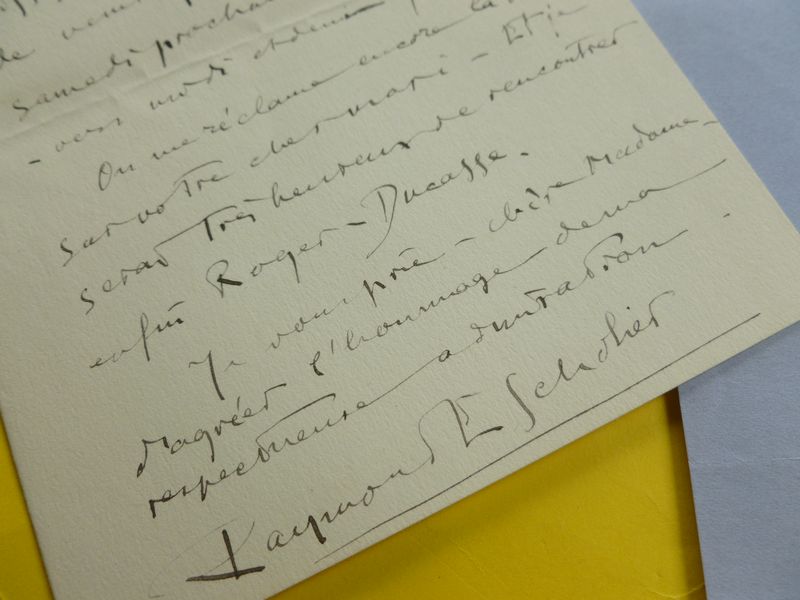 de venir
samedi prochain
- vers midi et demi
On me réclame encore la
sur votre cher mari - Et je
serai très heureux de rencontrer
enfin Roger-Ducasse.
Je vous prie - chère Madame -
d'agréer l'hommage de ma
respectueuse admiration.
Raymond Escholier